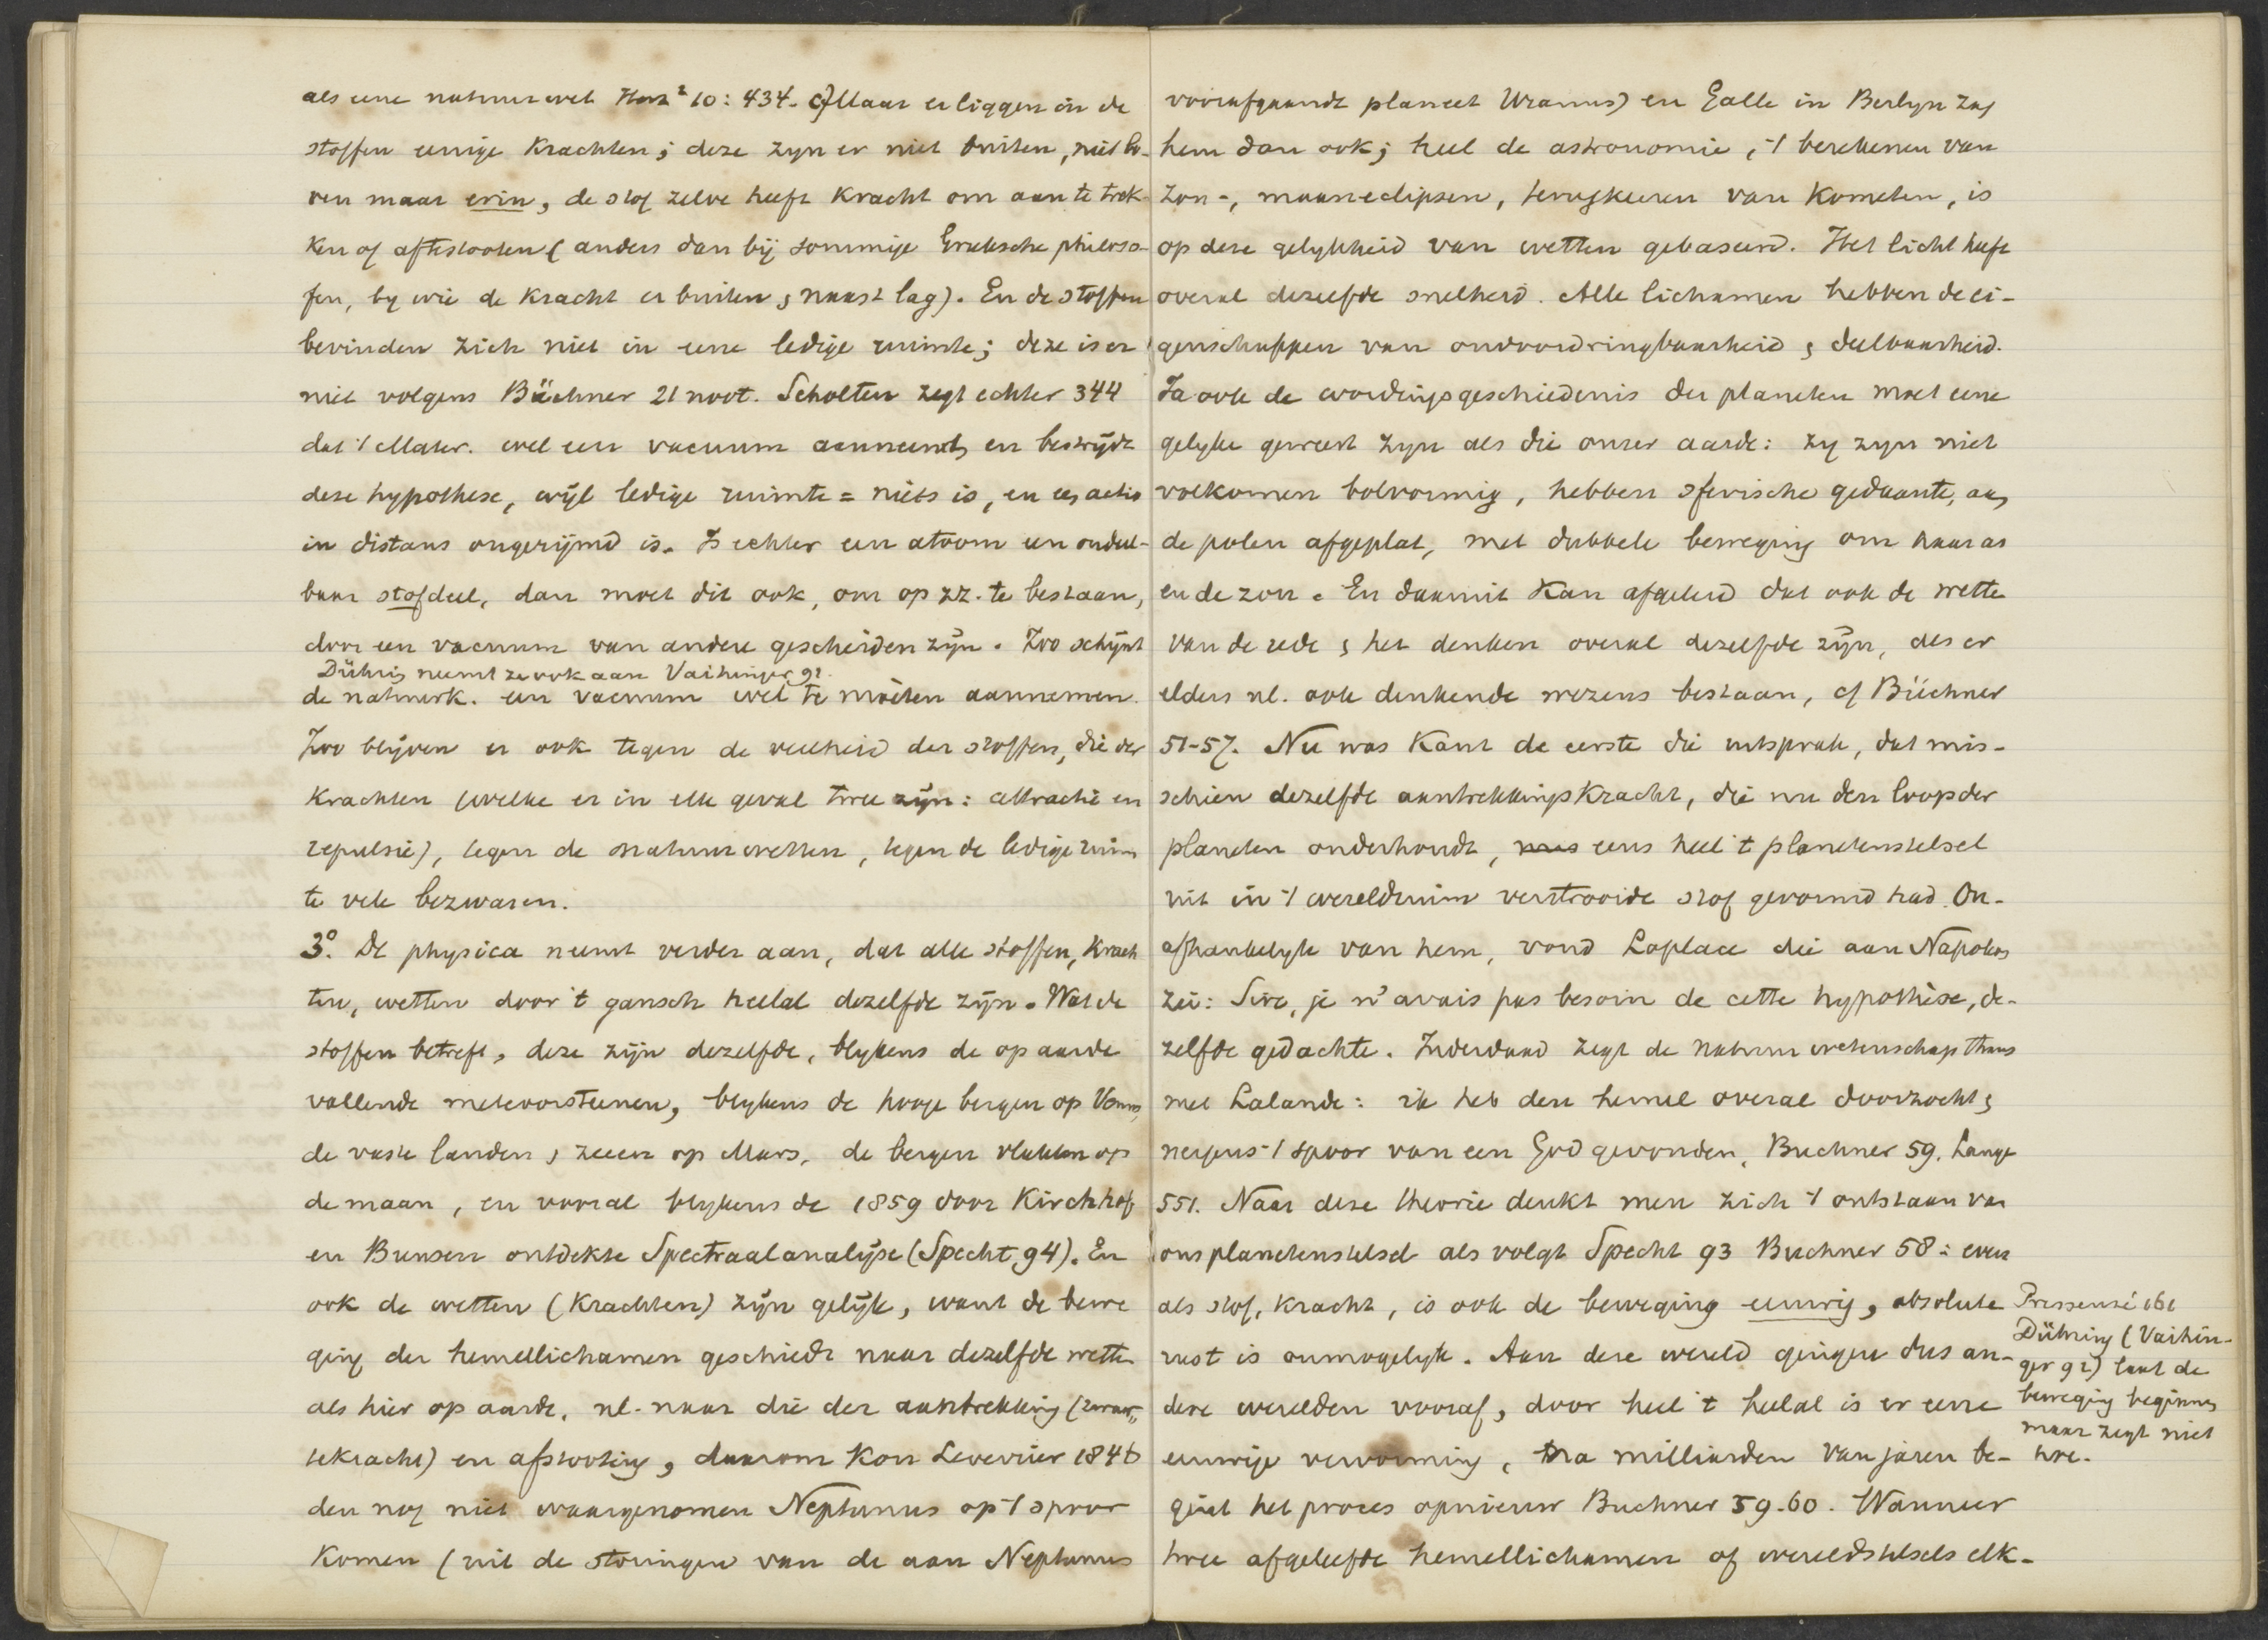 als eene natuurwet Herz² 10: 434. Maar er liggen in de
stoffen eenige Krachten; deze zyn er niet buiten, niet bo-
ven maar erin, de stof zelve heeft Kracht om aan te trek-
ken of afte stooten (anders dan bij sommige Grieksche philoso-
fen, by wie de Kracht er buiten, naast lag). En de stoffen
bevinden zich niet in eene ledige ruimte; deze is er
niet volgens Büchner 21 noot. Scholten zegt echter 344
dat 't Mater. wel een vacuum aanneemt, en bestrijdt
deze hypothese, wijl ledige ruimte = niets is, en actio
in distans ongerijmd is. Is echter een atoom een ondeel-
baar stofdeel, dan moet dit ook, om op zz. te bestaan,
door een vacuum van andere gescheiden zijn. Zoo schijnt
Dühring neemt ze ook aan Vaihinger 92.
de natuurk. een vacuum wel te moeten aannemen.
Zoo blijven er ook tegen de veelheid der stoffen, die der
Krachten (welke er in elk geval twee zijn: attractie en
repulsie), tegen de natuurwetten, tegen de ledige ruim
te vele bezwaren.
3º. De physica neemt verder aan, dat alle stoffen, Krach
ten, wetten door 't gansch heelal dezelfde zijn. Wat de
stoffen betreft, deze zijn dezelfde, blykens de op aarde
vallende meteoorsteenen, blykens de hooge bergen op Venus,
de vaste landen, zeeen op Mars, de bergen vlakken op
de maan, en vooral blykens de 1859 door Kirchhof
en Bunsen ontdekte Spectraalanalijse (Specht 94). En
ook de wetten (Krachten) zijn gelijk, want de bewe
ging der hemellichamen geschiedt naar dezelfde wetten
als hier op aarde, nl. naar die der aantrekking (zwaar-
tekracht) en afstooting, daarom Kon Leverrier 1846
den nog niet waargenomen Neptunus op 't spoor
Komen (uit de storingen van de aan Neptunus
voorafgaande planeet Uranus) en Galle in Berlyn zag
hem dan ook; heel de astronomie, 't berekenen van
zon-, maaneclipsen, terugkeeren van Kometen, is
op deze gelykheid van wetten gebaseerd. Het licht heeft
overal dezelfde snelheid. Alle lichamen hebben de ei-
genschappen van ondoordringbaarheid, deelbaarheid.
Ja ook de wordingsgeschiedenis der planeten moet eene
gelyke geweest zyn als die onzer aarde: zy zyn niet
volkomen bolvormig, hebben sferische gedaante, aan
de polen afgeplat, met dubbele beweging om haar as
en de zon. En daaruit Kan afgeleid dat ook de wette
van de rede, het denken overal dezelfde zijn, als er
elders nl. ook denkende wezens bestaan, cf Büchner
51-57. Nu was Kant de eerste die uitsprak, dat mis-
schien dezelfde aantrekkingskracht, die nu den loop der
planeten onderhoudt, eens heel 't planetenstelsel
uit in 't wereldruim verstrooide stof gevormd had. On-
afhankelyk van hem, vond Laplace die aan Napoleon
zei: Sire, je n'avais pas besoin de cette hypothèse, de-
zelfde gedachte. Inderdaad zegt de natuurwetenschap thans
met Lalande: ik heb den hemel overal doorzocht,
nergens 't spoor van een God gevonden, Buchner 59. Lange
551. Naar deze theorie denkt men zich 't ontstaan van
ons planetenstelsel als volgt Specht 93 Buchner 58: even
als stof, Kracht, is ook de beweging eeuwig, absolute
rust is onmogelyk. Aan deze wereld gingen dus an-
dere werelden vooraf, door heel 't heelal is er eene
eeuwige vervorming, na milliarden van jaren be-
gint het proces opnieuw Buchner 59-60. Wanneer
twee afgeleefde hemellichamen of wereldstelsels elk-
Pressensé 161
Dühring (Vaihin-
ger 92) laat de
beweging beginnen
maar zegt niet
hoe.